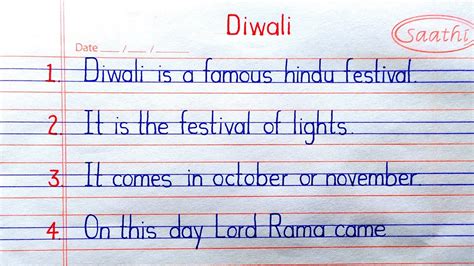 Diwali
Saathi
Date __/__/__
1. Diwali is a famous hindu festival.
2. It is the festival of lights.
3. It comes in october or november.
4. On this day Lord Rama came